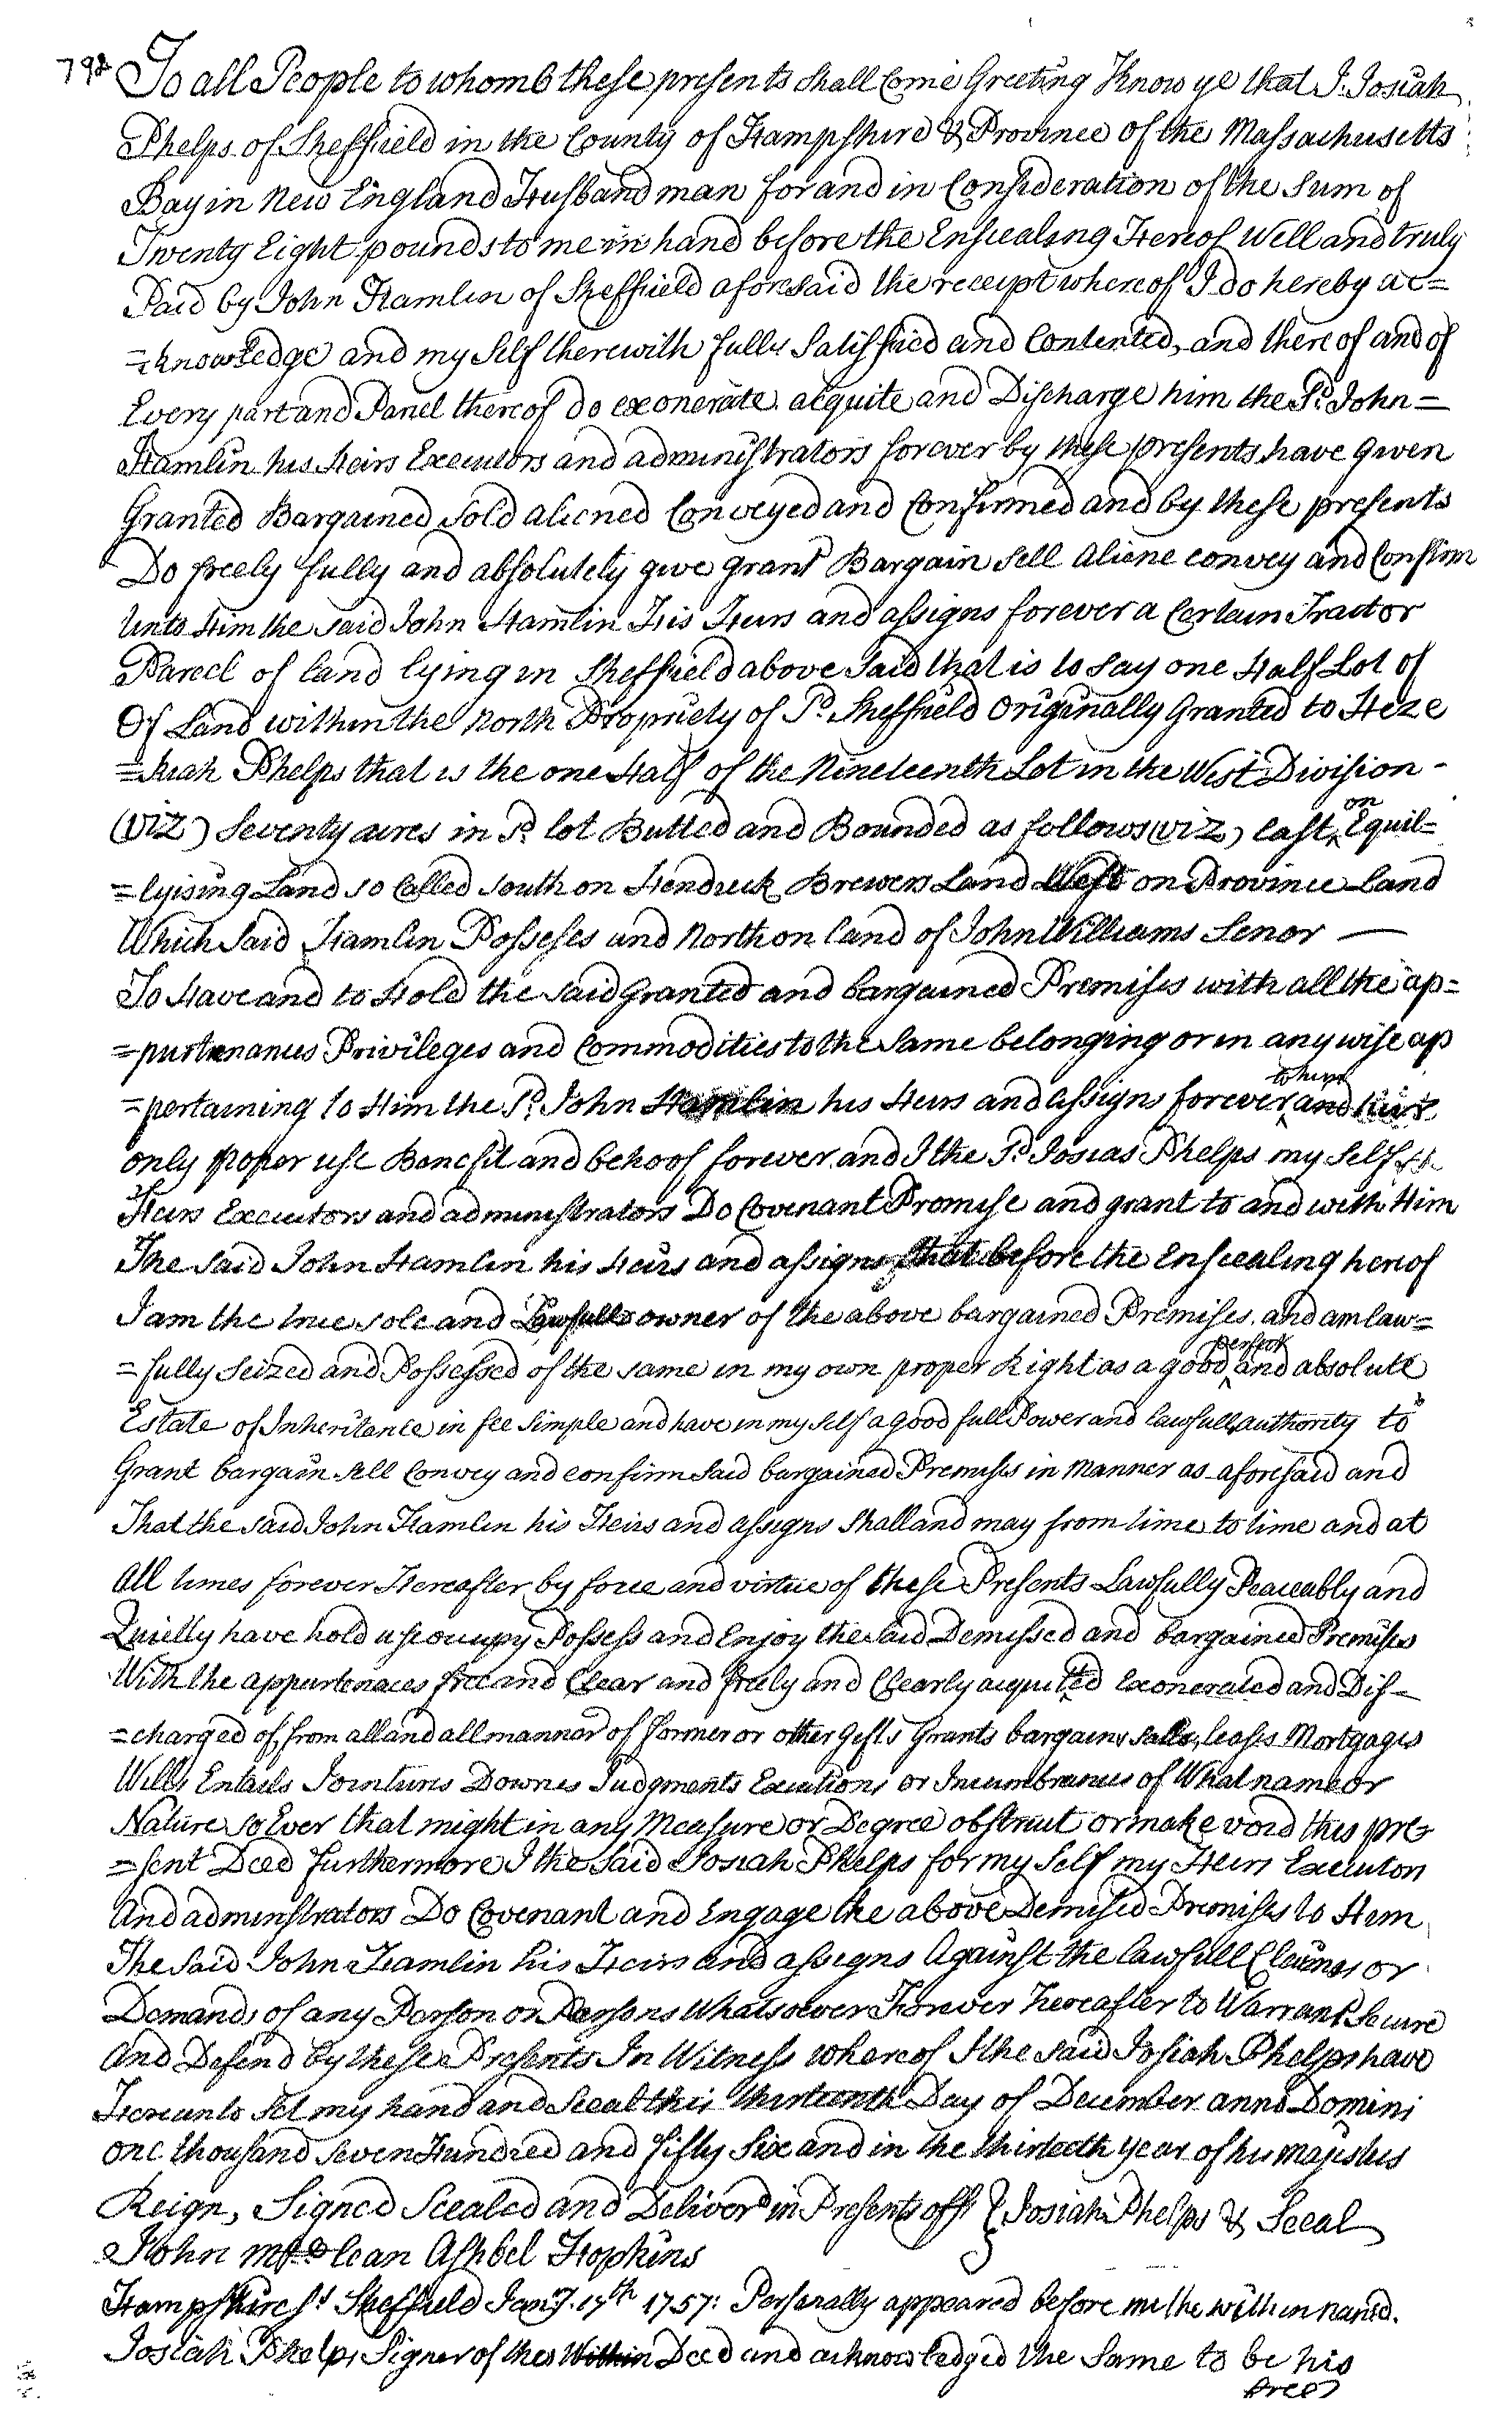 792 To all People to whom these presents shall Come Greeting Know ye that I. Josiah
Phelps of Sheffield in the County of Hampshire & Province of the Massachusetts
Bay in New England Husbandman for and in Consideration of the Sum of
Twenty Eight pounds to me in hand before the Ensealing Hereof Well and truly
Paid by John Hamlin of Sheffield aforesaid the receipt whereof I do hereby ac=
=knowledge and my Self therewith fully Satisfied and Contented, and there of and of
Every part and Parcel thereof do exonerate acquite and Discharge him the Sd. John=
Hamlin his Heirs Executors and administrators forever by these presents have given
Granted Bargained Sold aliened Conveyed and Confirmed and by these presents
Do freely fully and absolutely give grant Bargain Sell Aliene convey and Confirm
Unto Him the said John Hamlin His Heirs and assigns forever a Certain Tract or
Parcel of land lying in Sheffield above Said that is to say one Half Lot of
Of Land within the North Propriety of Sd. Sheffield Originally Granted to Heze
=kiah Phelps that is the one Half of the Nineteenth Lot in the West Division -
(Viz) Seventy acres in Sd lot Butted and Bounded as follows (viz) East on Equil=
=lyising Land so Called South on Hendrick Brewers Land West on Province Land
Which Said Hamlin Posseses and North on land of John Williams Senor —
To Have and to Hold the said Granted and bargained Premises with all the ap=
=purtenances Privileges and Commodities to the Same belonging or in any wise ap
=pertaining to Him the Sd. John Hamlin his Heirs and assigns forever to his and their
only proper use Benefit and behoof forever. and I the Sd. Josias Phelps my Self
Heirs Executors and administrators Do Covenant Promise and grant to and with Him
The Said John Hamlin his Heirs and assigns that before the Ensealing hereof
I am the true sole and Lawfull owner of the above bargained Premises. and am law=
=fully Seized and Possessed of the same in my own proper Right as a good perfect and absolute
Estate of Inheritance in fee Simple and have in my Self a good full Power and lawfull authority to
Grant bargain Sell Convey and confirm Said bargained Premises in Manner as aforesaid and
That the said John Hamlin his Heirs and assigns Shall and may from time to time and at
All times forever Hereafter by force and virtue of these Presents Lawfully Peaceably and
Quietly have hold use occupy Possess and Enjoy the Said Demissed and bargained Premises
With the appurtenaces free and Clear and freely and Clearly acquitted Exonerated and Dis-
=charged of, from all and all manner of former or other Gifts Grants bargains Sales, leases Mortgages
Wills Entails Jointures Dowries Judgments Executions or Incumbrances of What name or
Nature so Ever that might in any Measure or Degree obstruct or make void this pre
=sent Deed Furthermore I the Said Josiah Phelps for my Self my Heirs Executors
And adminstrators Do Covenant and Engage the above Demised Premises to Him
The Said John Hamlin his Heirs and assigns Against the lawfull Claimes or
Demands of any Person or Persons Whatsoever Forever Hereafter to Warrant Secure
And Defend by these Presents In Witness whereof I the Said Josiah Phelps have
Hereunto Set my hand and Seeal this thirteenth Day of December anno Domini
one thousand Seven Hundred and fifty Six and in the thirteeth year of his majesties
Reign, Signed Seealed and Deliverd in Presents off } Josiah Phelps & Seeal
John Ashbel Hopkins
Hampshire Ss Sheffield Jany. 17th 1757: Personally appeared before me the within named.
Josiah Phelps Signer of this Within Deed and acknowledged the Same to be his
free